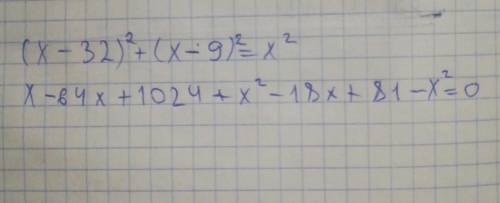 (x - 32)² + (x - 9)² = x²
x - 64x + 1024 + x² - 18x + 81 - x² = 0